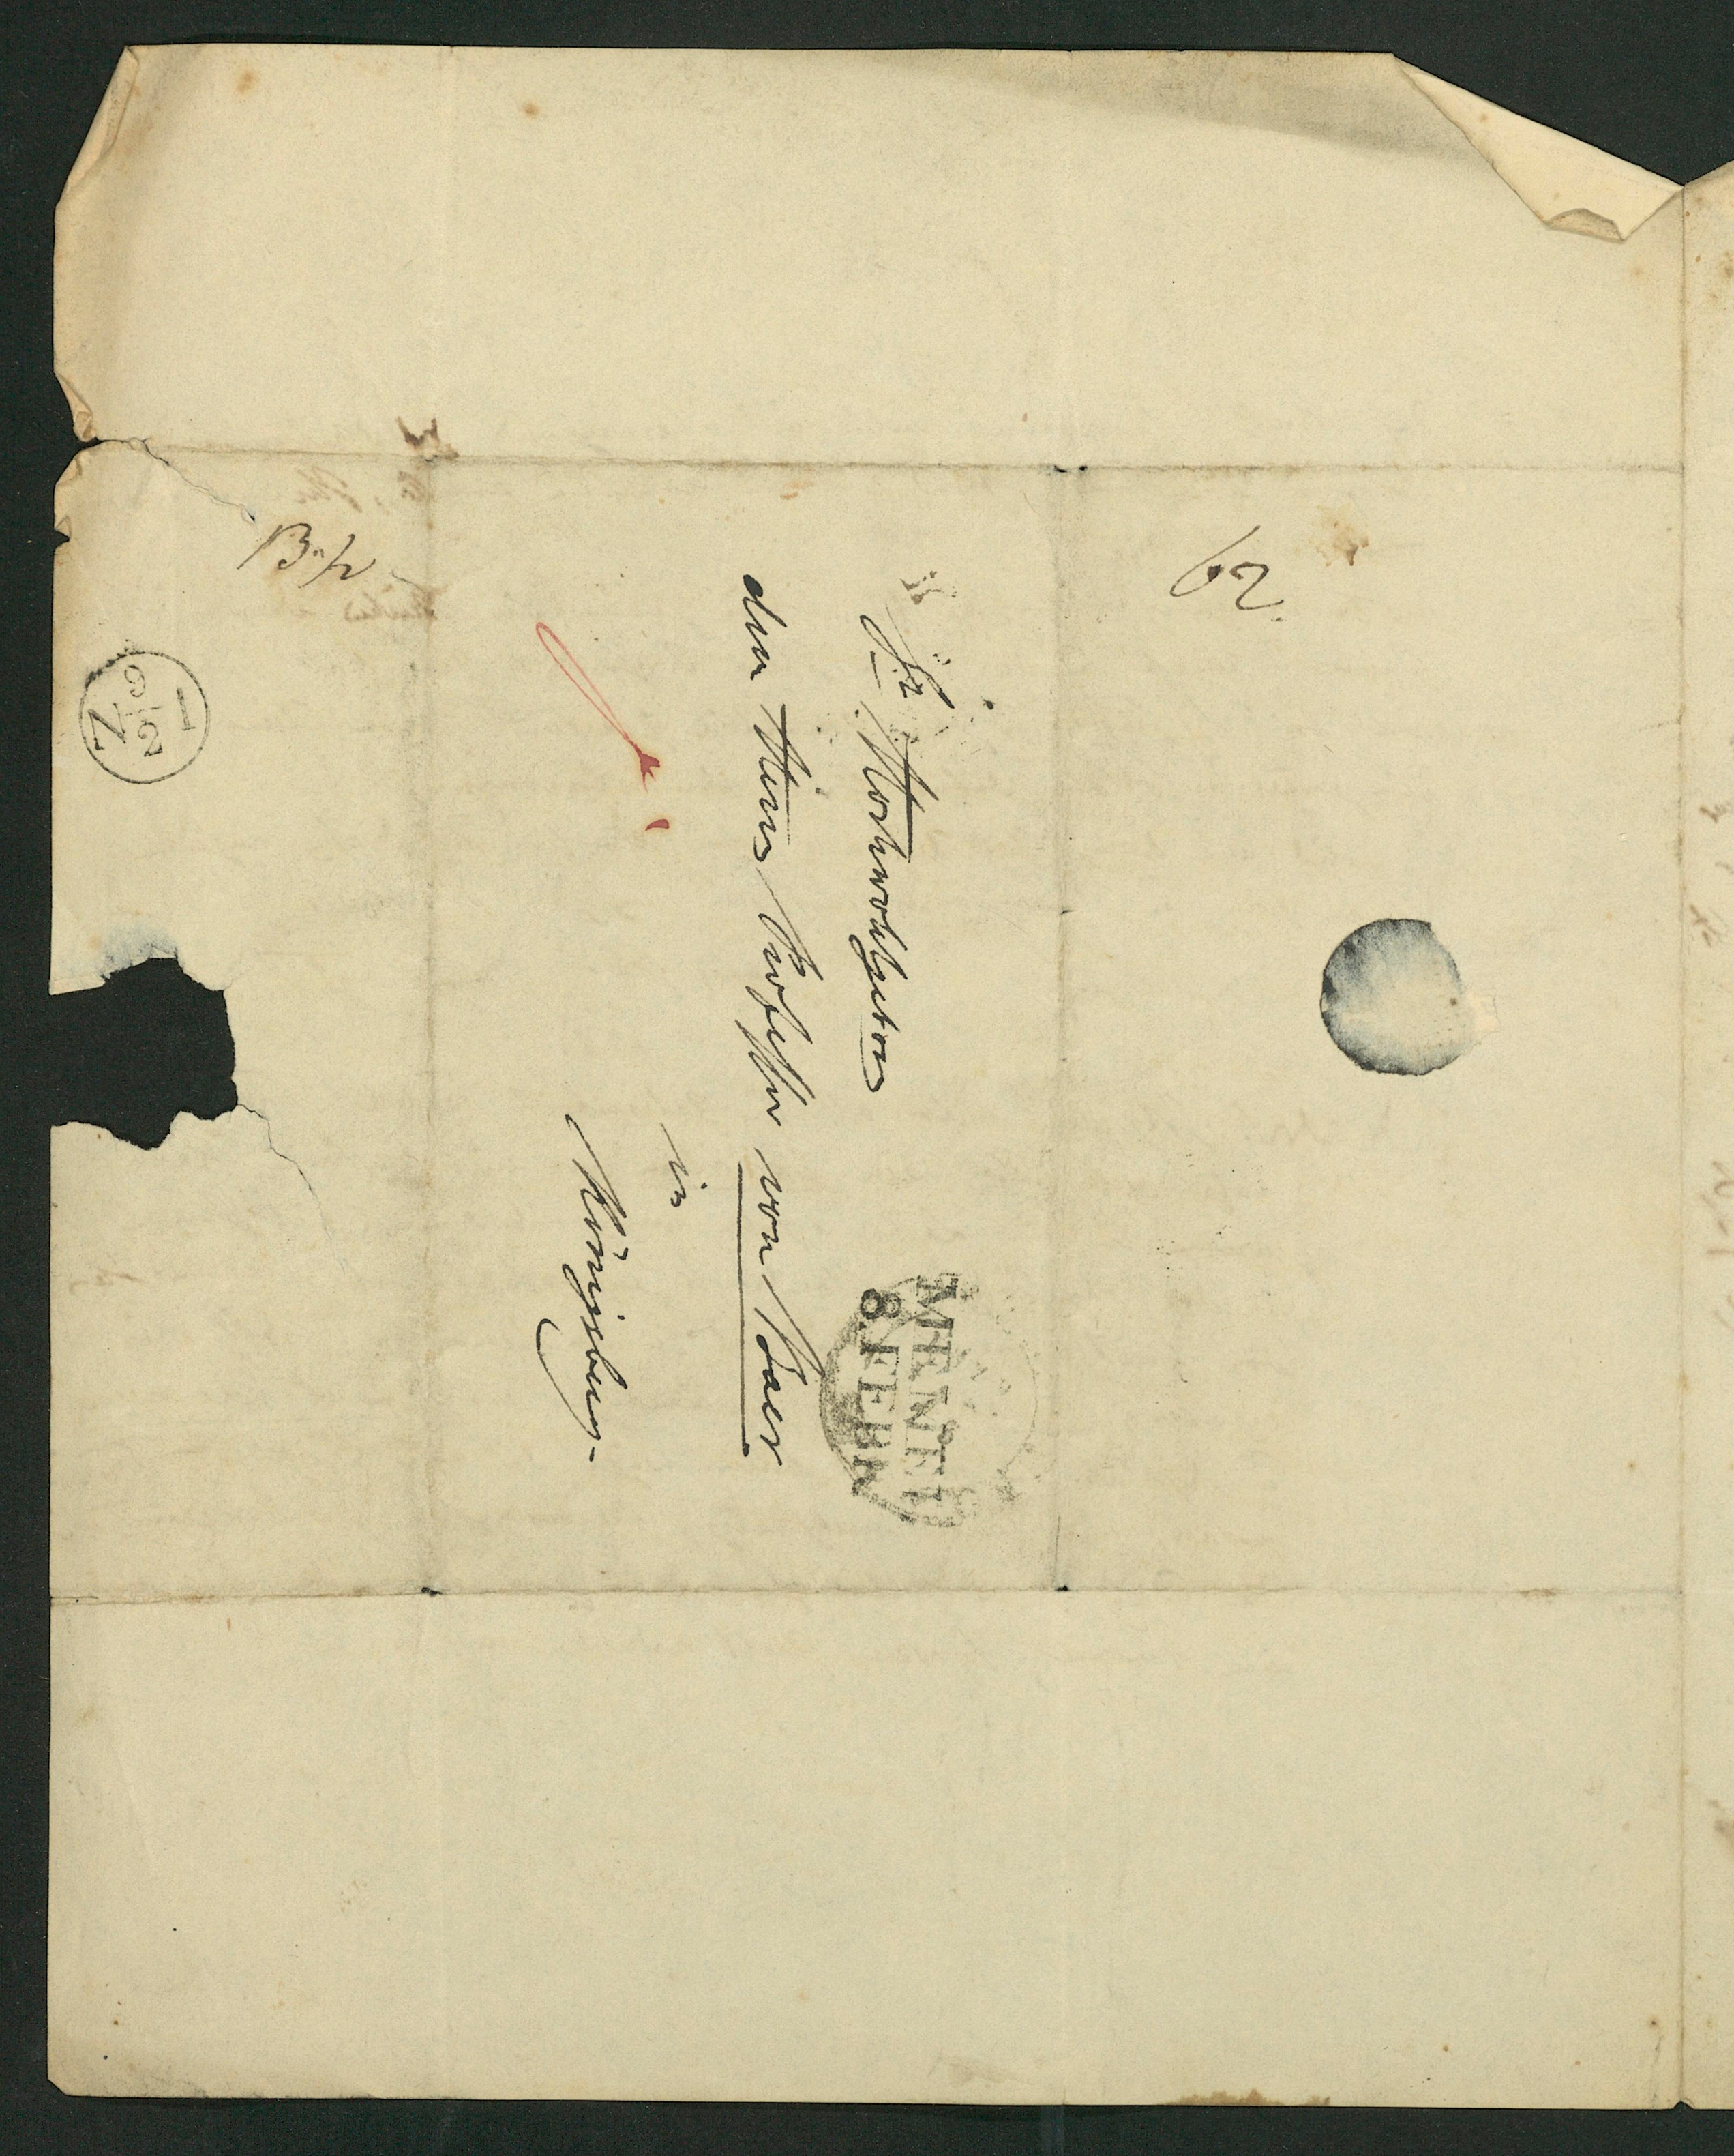 62.
Sr Hochwohlgeboren
dem Herrn Professor von Baer
in
Königsberg.
MEMEL
8 FEBR
N 9/2 I